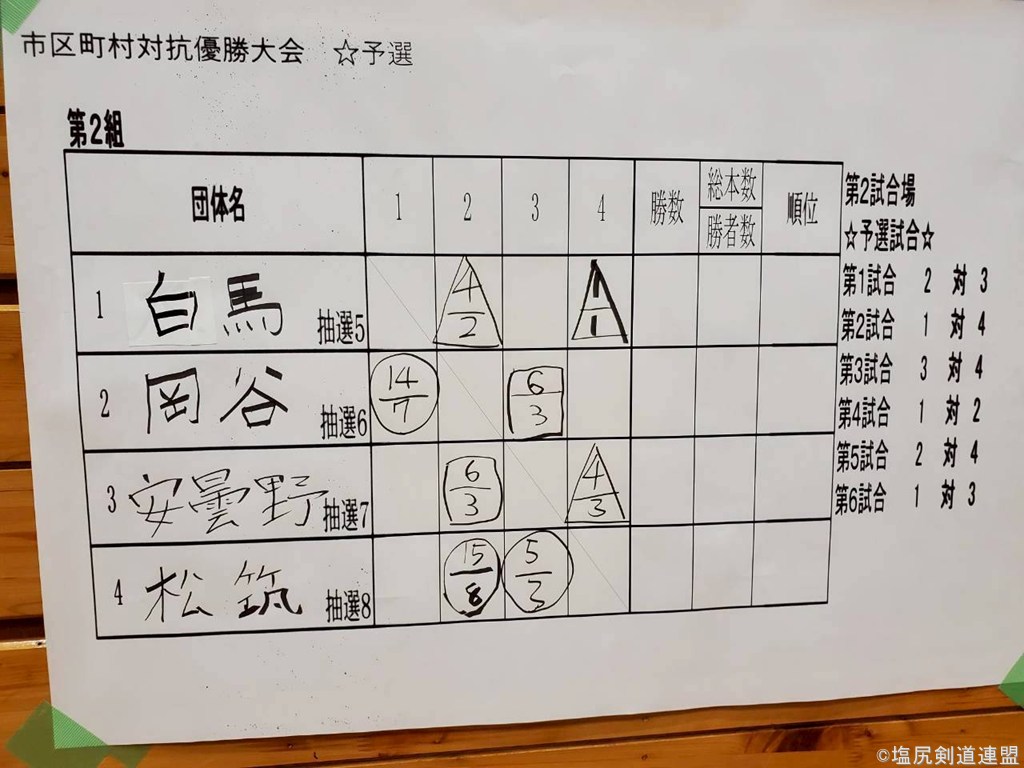 市区町村対抗優勝大会 ☆予選
第2組
団体名 1 2 3 4 勝数 総本数 勝者数 順位
1 白馬 抽選5 4 2 1 1
2 岡谷 抽選6 14 7 6 3
3 安曇野 抽選7 6 3 4 3
4 松筑 抽選8 15 8 5 3
第2試合場
☆予選試合☆
第1試合 2 対 3
第2試合 1 対 4
第3試合 3 対 4
第4試合 1 対 2
第5試合 2 対 4
第6試合 1 対 3
©塩尻剣道連盟